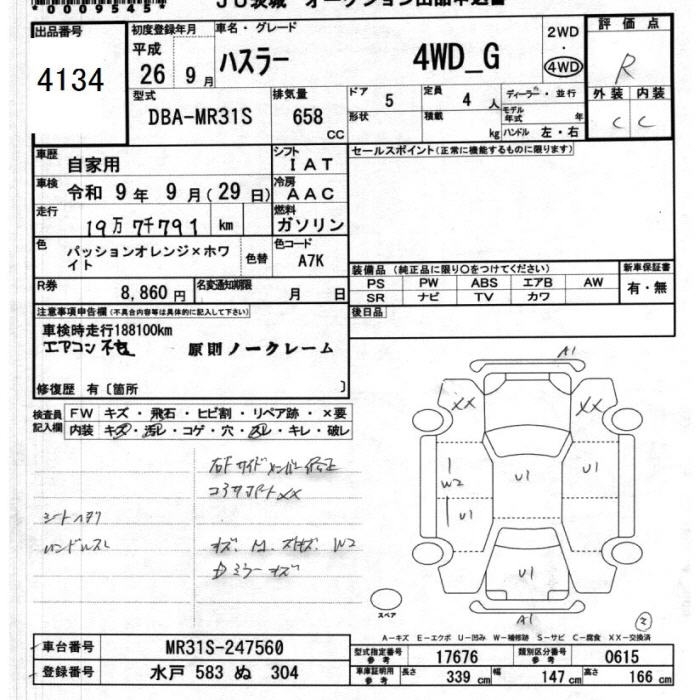 *0009545*
JU茨城 オークション出品申込書
出品番号
4134
初度登録年月
平成
26 9月
車名・グレード
ハスラー 4WD_G
2WD
・
4WD
評価点
R
外装 内装
C C
型式
DBA-MR31S
排気量
658
CC
ドア 5
形状
定員 4 人
積載 kg
ディーラー・並行
モデル年式 年
ハンドル 左・右
車歴
自家用
シフト
IAT
セールスポイント(正常に機能するものに限ります)
車検
令和 9 年 9 月(29 日)
冷房
AAC
走行
19万 7千791 km
燃料
ガソリン
色
パッションオレンジ×ホワイト
色替
色コード
A7K
R券
8,860 円
名変通知期限
月 日
装備品(純正品に限り〇をつけてください)
PS PW ABS エアB AW
SR ナビ TV カワ
新車保証書
有・無
後日品
注意事項申告欄(不具合内容等は具体的に記入して下さい)
車検時走行188100km
エアコン 原則ノークレーム
修復歴 有〔箇所 〕
検査員記入欄
FW キズ・飛石・ヒビ割・リペア跡・×要
内装 キズ・汚レ・コゲ・穴・スレ・キレ・破レ
コアサポートXX
シートヘタリ
ハンドルスレ
W2
ミラーキズ
A1
XX XX
W2 U1 U1
U1
U1
A1
スペア
2
A-キズ E-エクボ U-凹み W-補修跡 S-サビ C-腐食 XX-交換済
車台番号
MR31S-247560
登録番号
水戸 583 ぬ 304
型式指定番号
参考
17676
類別区分番号
参考
0615
車庫証明用
参考
長さ 339 cm 幅 147 cm 高さ 166 cm